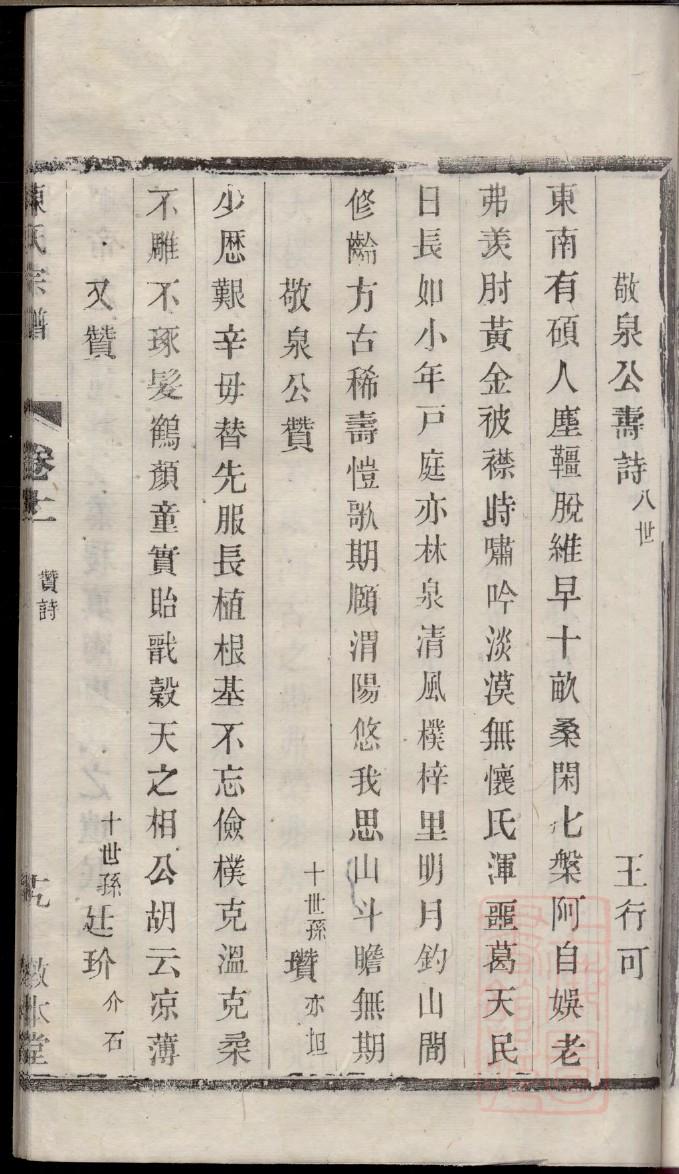 敬泉公壽詩 八世 王行可
東南有碩人塵韁脫維早十畝桑閑七槃阿自娛老
弗羨肘黃金被襟時嘯吟淡漠無懷氏渾噩葛天民
日長如小年戸庭亦林泉清風樸梓里明月釣山間
修齡方古稀壽愷歌期頤渭陽悠我思山斗瞻無期
敬泉公贊 十世孫 瓚 亦坦
少歴艱辛毋替先服長植根基不忘儉樸克溫克桑
不雕不琢髮鶴顏童實貽戩穀天之相公胡云凉薄
又贊 十世孫 廷玠 介石
陳氏宗譜 卷十一 贊詩 敬本堂